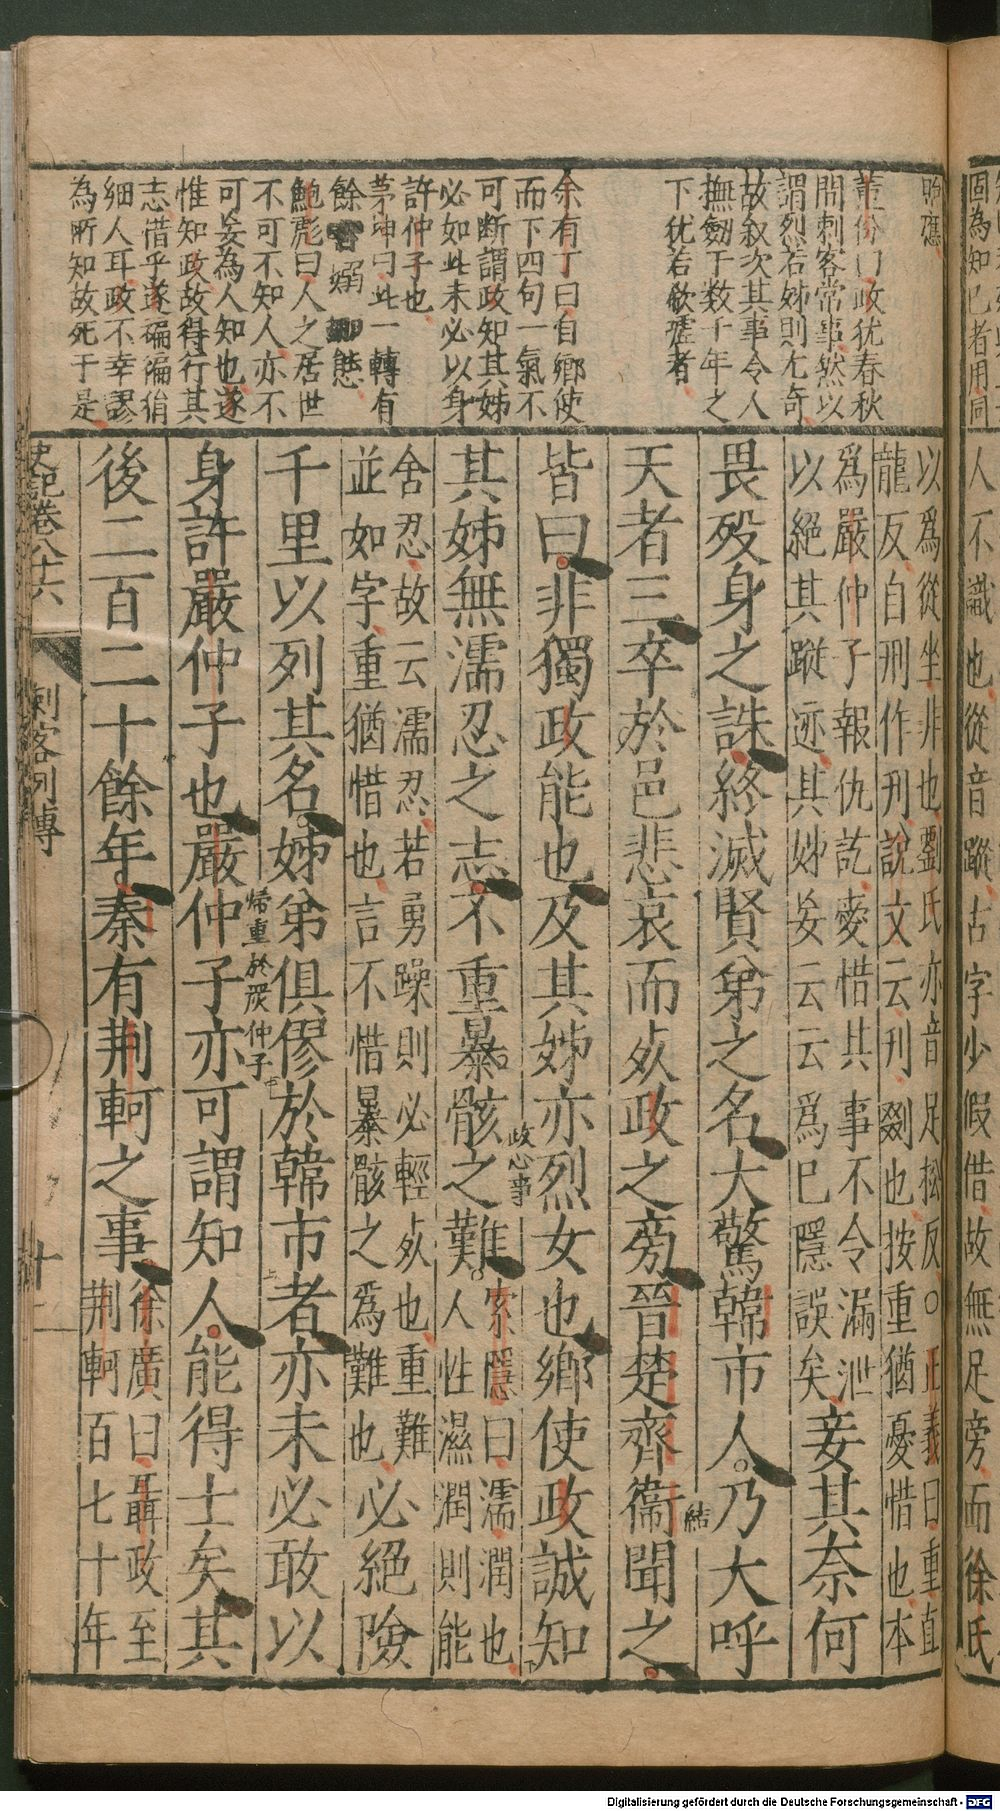 固為知己者用同
人不識也從音蹤古字少假借故無足旁而徐氏
昫應
董份曰政犹春秋
間刺客常事然以
謂烈若姊則尤奇
故叙次其事令人
撫劒于数千年之
下犹若欷歔者
余有丁曰自鄉使
而下四句一氣不
可断謂政知其姊
必如此未必以身
許仲子也
茅坤曰此一轉有
餘
鮑彪曰人之居世
不可不知人亦不
可妄為人知也遂
惟知政故得行其
志惜乎遂褊褊狷
細人耳政不幸謬
為所知故死于是
以爲從坐非也劉氏亦音足松反○正義曰重直
龍反自刑作刋說文云刋剟也按重猶憂惜也本
爲嚴仲子報仇訖愛惜其事不令漏泄
以絕其蹤迹其姊妄云云爲巳隱誤矣
妾其奈何
畏歿身之誅終滅賢弟之名大驚韓市人乃大呼
天者三卒於邑悲哀而死政之旁晉楚齊衞聞之
皆曰非獨政能也及其姊亦烈女也鄉使政誠知
其姊無濡忍之志不重暴骸之難
索隱曰濡潤也
人性濕潤則能
舍忍故云濡忍若勇躁則必輕死也重難
並如字重猶惜也言不惜暴骸之爲難也
必絕險
千里以列其名姊弟俱僇於韓市者亦未必敢以
身許嚴仲子也嚴仲子亦可謂知人能得士矣其
後二百二十餘年秦有荆軻之事
徐廣曰聶政至
荆軻百七十年
結
政心事
歸重於嚴仲子
史記卷八十六
刺客列傳
十二
Digitalisierung gefördert durch die Deutsche Forschungsgemeinschaft - DFG